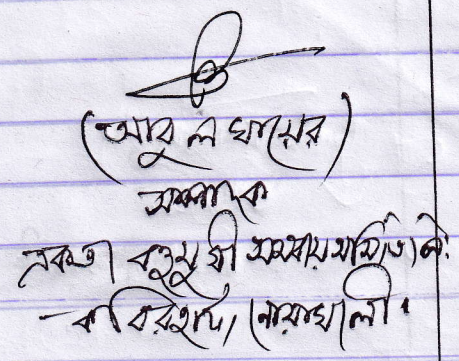 (আবুল খায়ের)
সম্পাদক
একতা বহুমুখী সমবায় সমিতি লি:
কবিরহাট, নোয়াখালী।